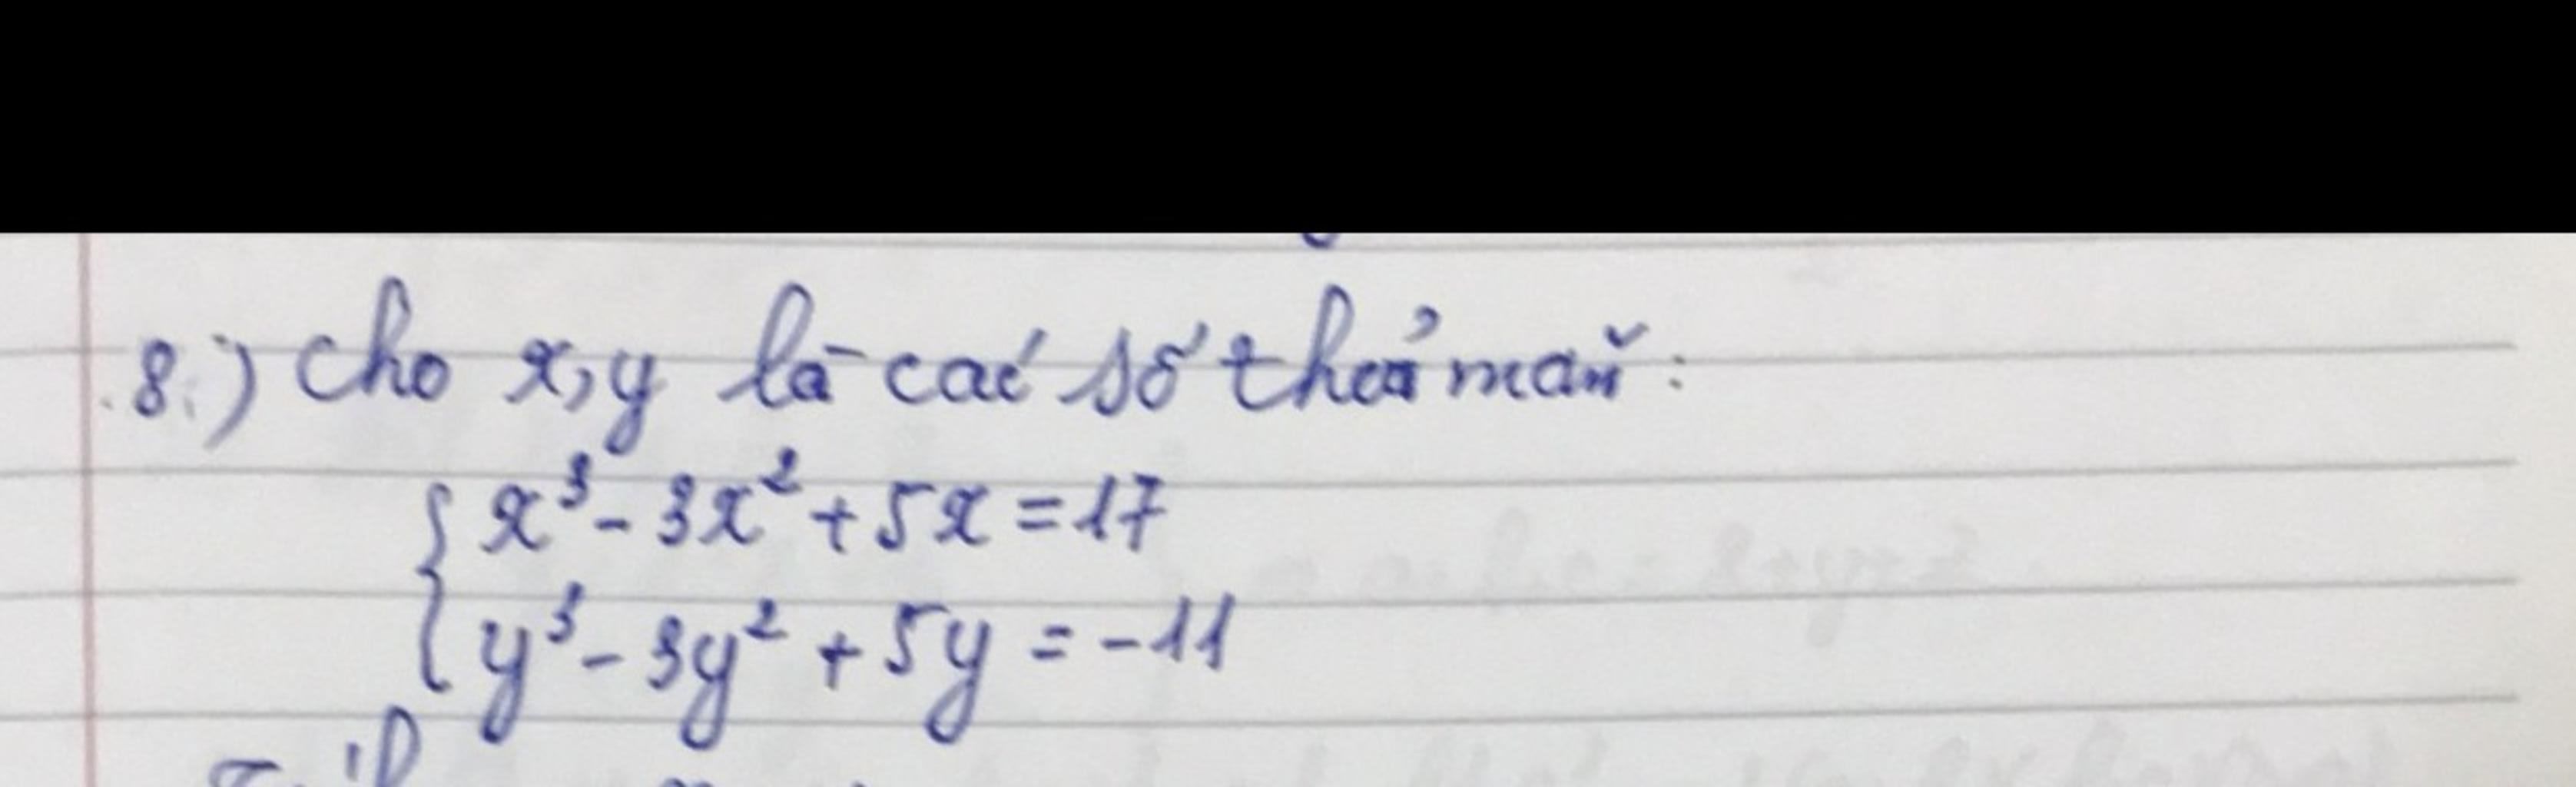 8.) Cho x, y là các số thoả mãn:
x³ - 3x² + 5x = 17
y³ - 3y² + 5y = -11